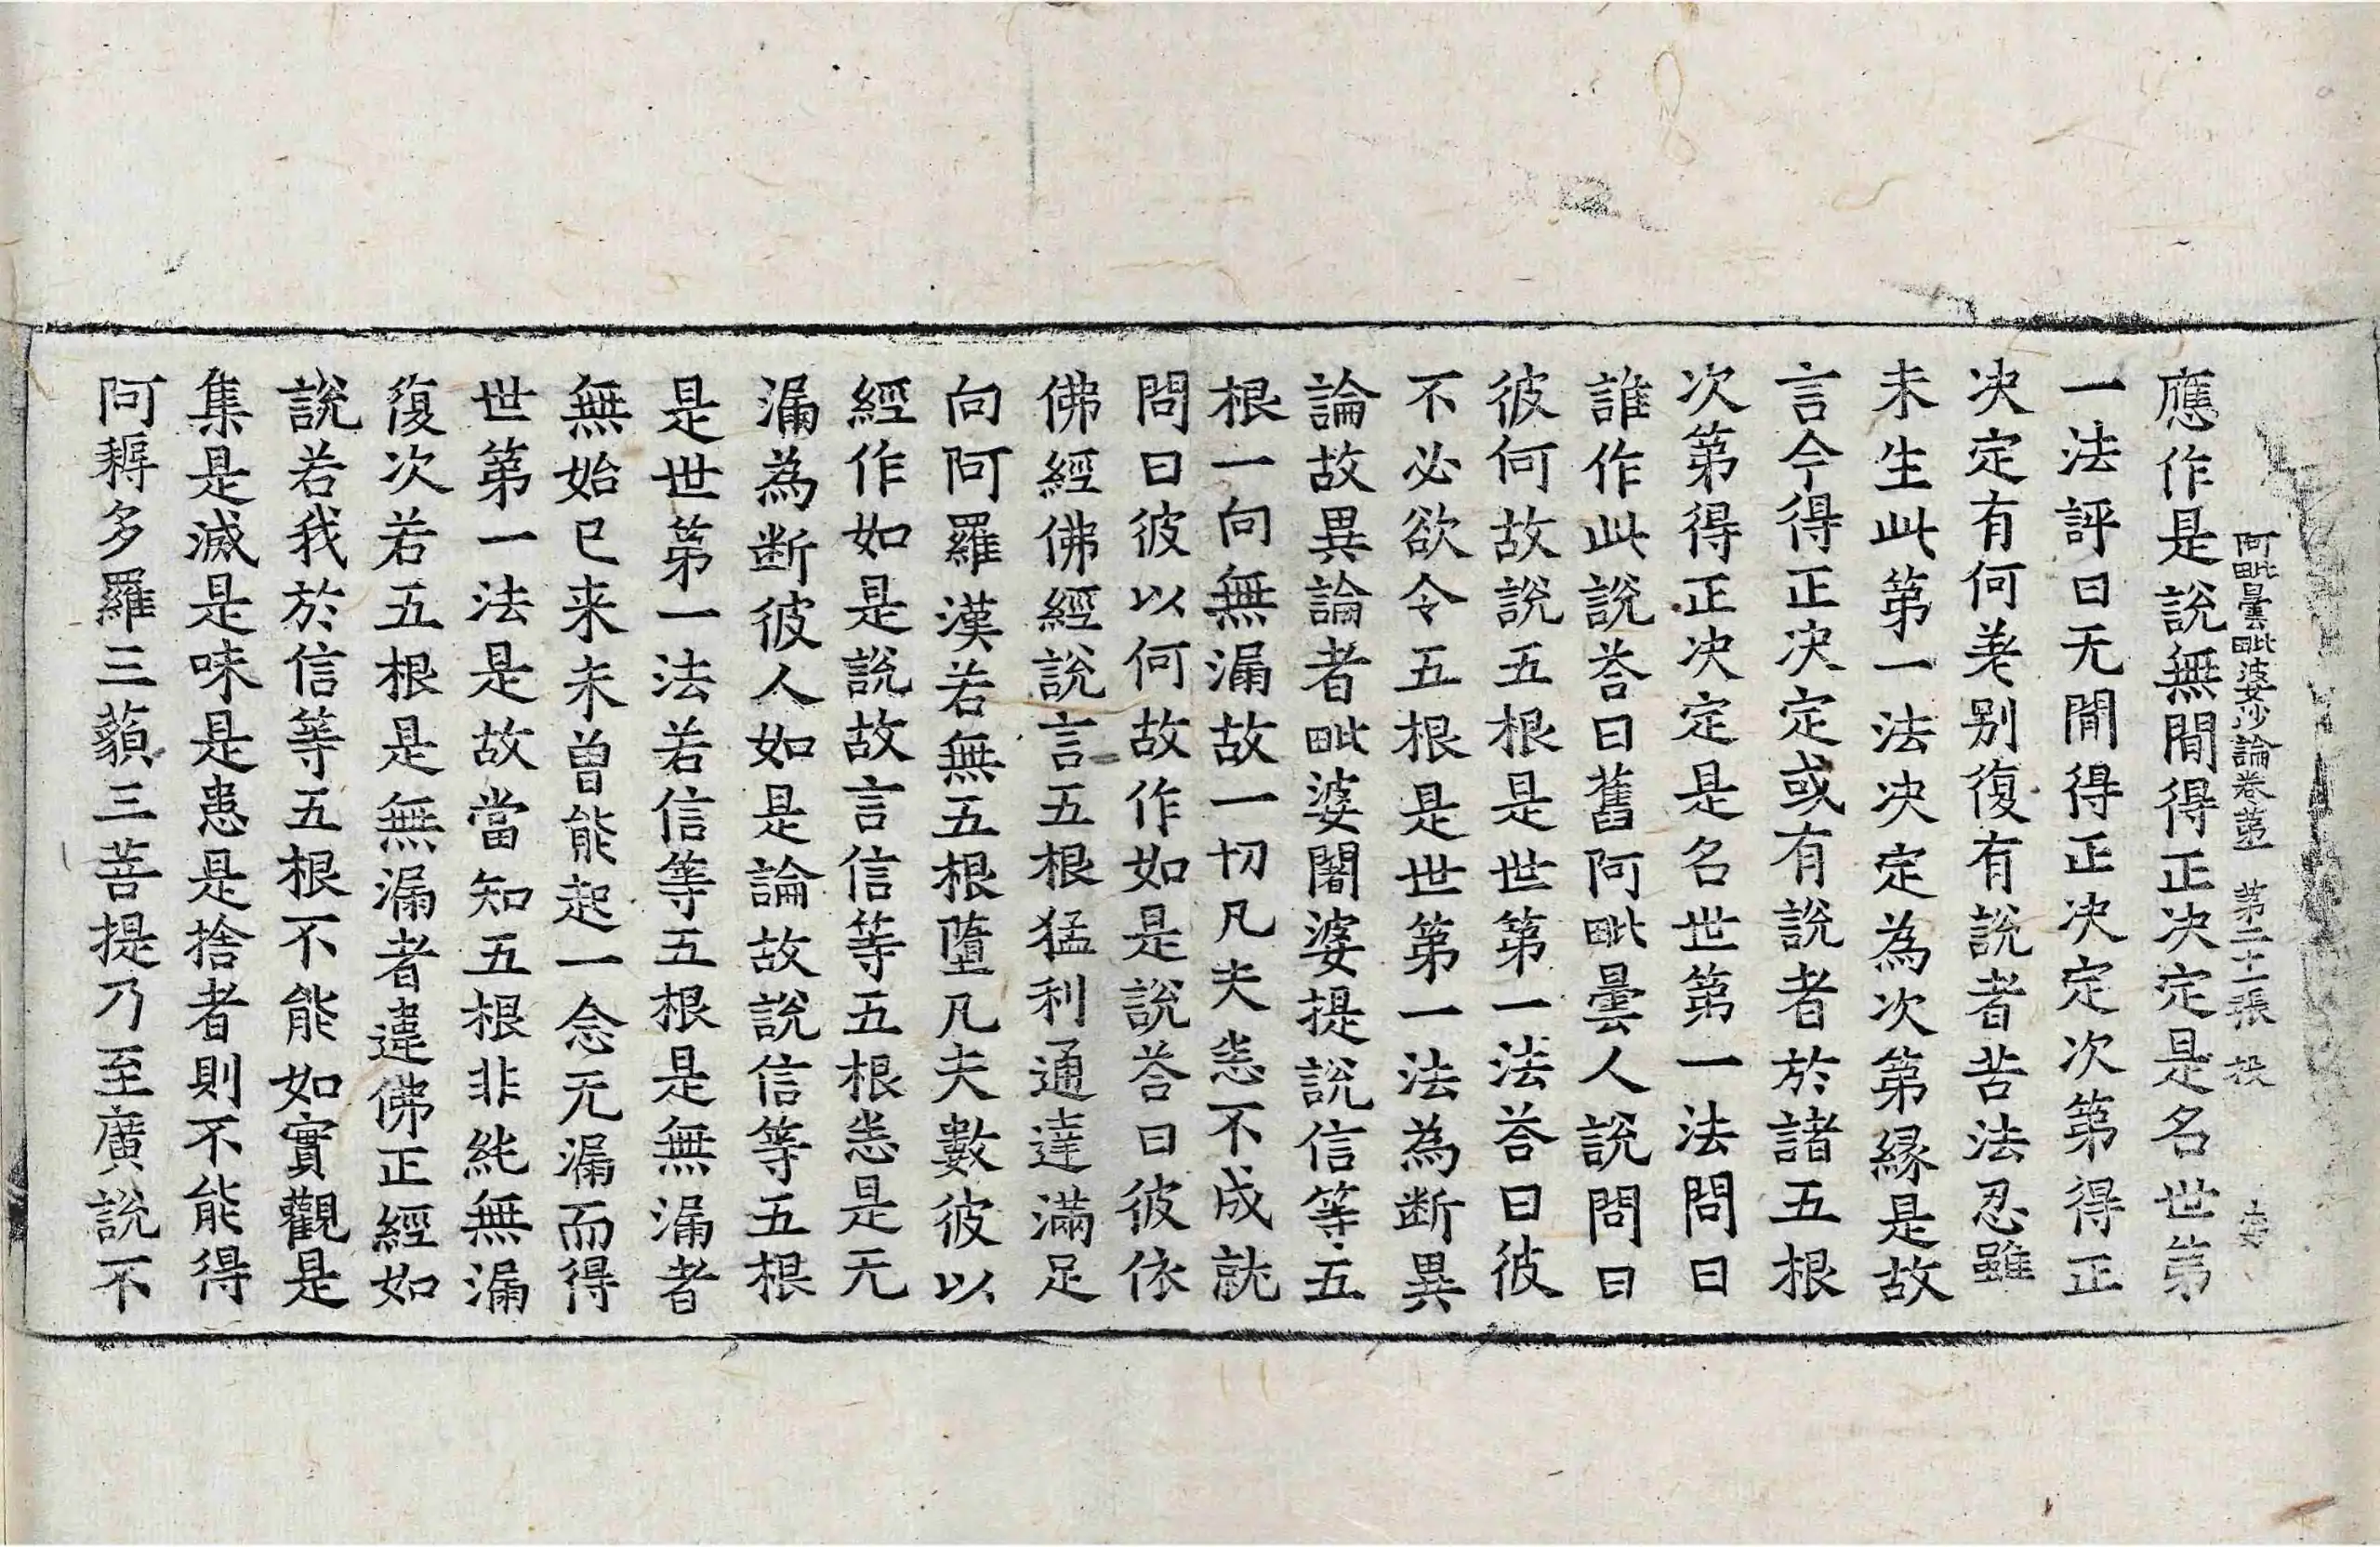 阿毗曇毗婆沙論卷第一 第二十二張 投
應作是說無閒得正决定是名世第
一法評曰无閒得正决定次第得正
决定有何差别復有說者苦法忍雖
未生此第一法决定為次第緣是故
言今得正决定或有說者於諸五根
次第得正决定是名世第一法問曰
誰作此說荅曰舊阿毗曇人說問曰
彼何故說五根是世第一法荅曰彼
不必欲令五根是世第一法為断異
論故異論者毗婆闍婆提說信等五
根一向無漏故一切凡夫悉不成就
問曰彼以何故作如是說荅曰彼依
佛經佛經說言五根猛利通達滿足
向阿羅漢若無五根墮凡夫數彼以
經作如是說故言信等五根悉是无
漏為断彼人如是論故說信等五根
是世第一法若信等五根是無漏者
無始已来未曾能起一念无漏而得
世第一法是故當知五根非純無漏
復次若五根是無漏者違佛正經如
說若我於信等五根不能如實觀是
集是滅是味是患是捨者則不能得
阿耨多羅三藐三菩提乃至廣說不